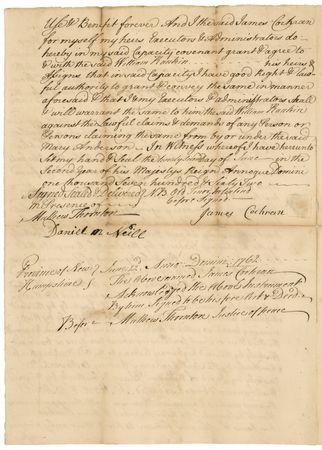 Use & Benefit forever And I the said James Cochran
for myself my heirs Executors & Administrators do
hereby in my said Capacity covenant grant & agree to
& with the said William Rankin his heirs &
Assigns that in said Capacity I have good Right & law-
full authority to grant & convey the same in manner
aforesaid & that I & my Executors & administrators shall
& will warrant the same to him the said William Rankin
against the lawful claims & demands of any Person or
Persons claiming the same from by or under the said
Mary Anderson In Witness whereof I have hereunto
set my hand & Seal the twenty second day of June in the
Second Year of his Majestys Reign Annoque Domini
one thousand Seven hundred & Sixty Two
Signed Seald & Delivered NB
In Presence of before Signed
Matthew Thornton James Cochran
Daniel Mc Neill
Province of New June 22 Anno Domini 1762
Hampshire The Above named James Cochran
Acknowledged the Above Instrument
By him Signed to be his free Act & Deed
Before Matthew Thornton Justice of Peace